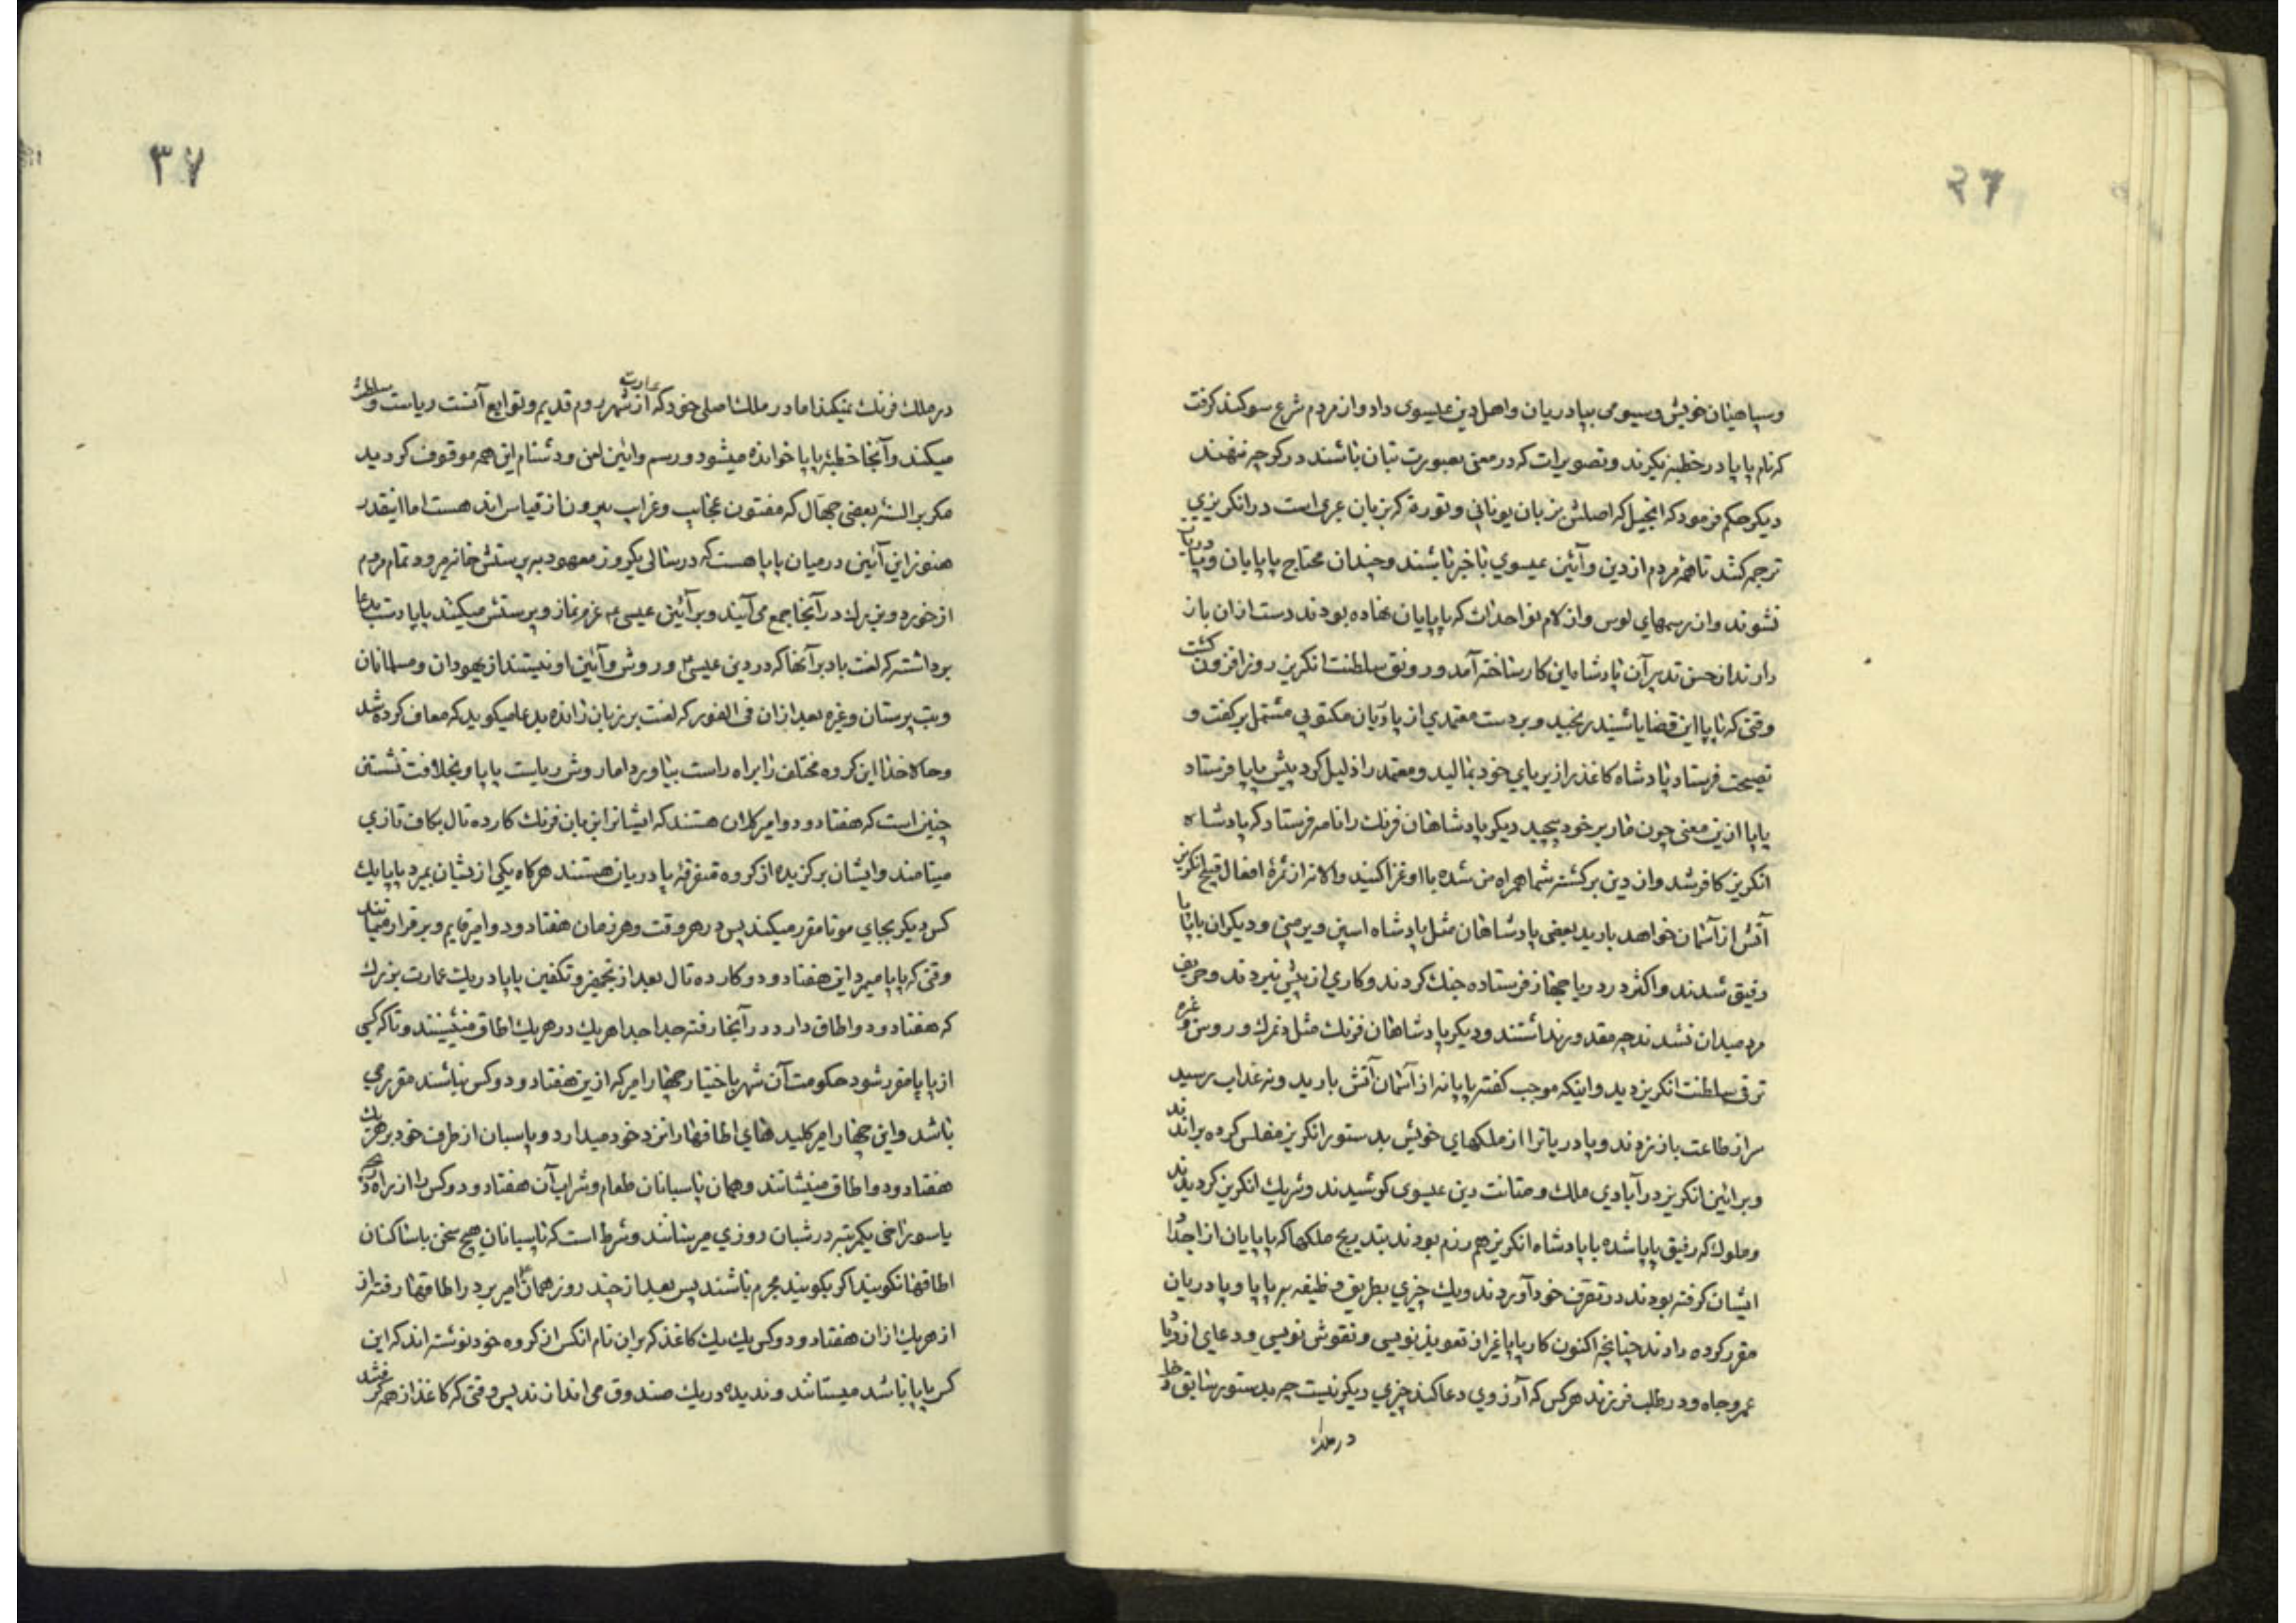 ۳۶
وسپاهیان خویش وسیومی بپادریان واهل دین عیسوی داد واز مردم شرع سوکند کرفت
که نام پاپا در خطبه نکیرند وتصویرات که در معنی بصورت بتان باشند در کوچه ننهند
دیکر حکم فرمود که انجیل که اصلش بزبان یونانی وتورة که بزبان عبری است در انکریزی
ترجمه کنند تا همه مردم از دین وآئین عیسوی باخبر باشند وچندان محتاج پاپایان وپادریان
نشوند وازرسمهای لوس وازلام نواحداث که پاپایان نهاده بودند دست ازان باز
دارند از حسن تدبیر آن پادشاه این کار ساخته آمد ورونق سلطنت انکریز روز افزون کشت
وقتی که پاپا این قضایا شنید رنجید وبر دست معتمدی از پادریان مکتوبی مشتمل بر کفت و
نصیحت فرستاد پادشاه کاغذ را زیر پای خود بمالید ومعتمد را ذلیل کرد پیش پاپا فرستاد
پاپا ازین معنی چون مار بر خود پیچید دیکر پادشاهان فرنك را نامه فرستاد که پادشاه
انکریز کافر شد واز دین برکشته شما همراه من شده با او غزا کنید والا نه از ثمرۀ افعال قبیح انکریز
آتش از آسمان خواهد بارید بعضی پادشاهان مثل پادشاه اسپن و ودیکران با پاپا
رفیق شدند واکثر در دریا جهاز فرستاده جنك کردند وکاری از پیش نبردند وحریف
مرد میدان نشدند چه مقدور نداشتند ودیکر پادشاهان فرنك مثل دنمرك وروس وغیره
ترقی سلطنت انکریز دید واینکه موجب کفته پاپا نه از آسمان آتش بارید ونه عذاب رسید
سر از طاعت باز زدند وپادریانرا از ملکهای خویش بدستور انکریز مفلس کرده براندند
وبر ائین انکریز در آبادی ملك ومتانت دین عیسوی کوشیدند وشریك انکریز کردیدند
وملوك که رفیق پاپا شده با پادشاه انکریز هم رزم بودند بتدریج ملکها که پاپایان از اجداد
ایشان کرفته بودند در تصرف خود آوردند ویك چیزی بطریق وظیفه بر پاپا وپادریان
مقرر کرده دادند چنانچه اکنون کار پاپا غیر از تعویذ نویسی ونقوش نویسی ودعای ازدیاد
عمر وجاه ودر طلب فرزند هرکس که آرزوی دعا کند چیزی دیکر نیست چه بدستور سابق
در ملك
۳۷
در ملك فرنك نمیکند اما در ملك اصلی خود که عبارت از شهر روم قدیم وتوابع آنست ریاست وسلطنت
میکند وآنجا خطبۀ پاپا خوانده میشود ورسم وائین لعن ودشنام این همه موقوف کردید
مکر بر السنۀ بعضی جهال که مفتون عجایب وغرایب بیرون از قیاس اند هست اما اینقدر
هنوز این آئین درمیان پاپا هست که در سالی یکروز معهود به پرستش خانه میرود وتمام مردم
از خورد وبزرك در آنجا جمع می آیند وبر آئین عیسی نماز وپرستش میکنند پاپا دست بدعا
برداشته که لعنت باد بر آنها که در دین عیسی وروش وآئین او نیستند از یهودان ومسلمانان
وبت پرستان وغیره بعد ازان فی الفور که لعنت بر زبان رانده بدعا میکوید که معاف کرده شد
وحالا خدا این کروه مختلف را براه راست بیاورد اما روش ریاست پاپا وبخلافت نشستن
چنین است که هفتاد ودو امیر کلان هستند که ایشانرا بزبان فرنك کارده نال بکاف تازی
مینامند وایشان برکزیده از کروه متفرقۀ پادریان هستند هرکاه یکی ازیشان بمرد پاپا یك
کس دیکر بجای موتا مقرر میکند پس در هر وقت وهر زمان هفتاد ودو امیر قایم وبرقرار میمانند
وقتی که پاپا میمرد این هفتاد ودو کارده نال بعد از تجهیز وتکفین پاپا در یك عمارت بزرك
که هفتاد ودو اطاق دارد در آنجا رفته جدا جدا هریك در هریك اطاق مینشینند وتا که کسی
از پاپا مقرر شود حکومت آن شهر باختیار چهار امیر که ازین هفتاد ودو کس نباشند مقرر می
باشد واین چهار امیر کلید های اطاقها را نزد خود میدارد وپاسبان از طرف خود بر هریك
هفتاد ودو اطاق مینشانند وهمان پاسبانان طعام وشراب آن هفتاد ودو کس را از راه دریچه
یا سوراخی یکمرتبه در شبان روزی میرسانند وشرط است که پاسبانان هیچ سخن با ساکنان
اطاقها نکویند اکر بکویند مجرم باشند پس بعد از چند روز همان امیر برد راطاقها رفته از
از هریك ازان هفتاد ودو کس یك یك کاغذ که بران نام آنکس از کروه خود نوشته اند که این
کس پاپا باشد میستاند وندیده در یك صندوق می اندازند پس وقتی که کاغذ از همه کرفته شد